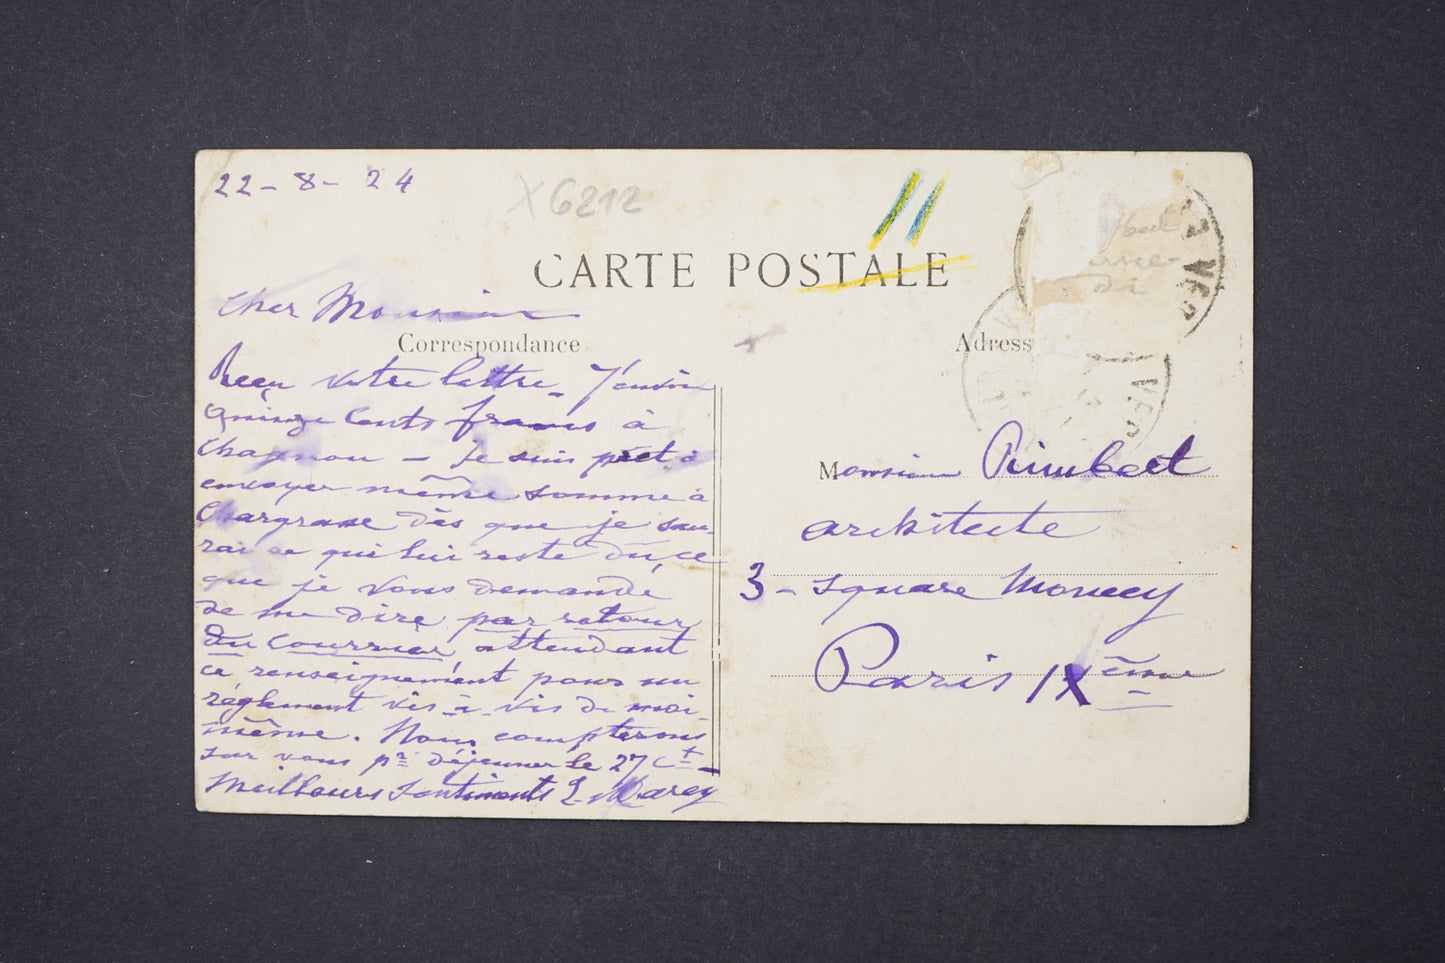 22-8-24
X6212
11
CARTE POSTALE
Cher Monsieur
Correspondance
Adress
Reçu votre lettre. J'envoie
quinze cents francs à
Je suis prêt à
envoyer même somme à
Chargrasse dès que je sau-
rai ce qui lui reste dû, ce
que je vous demande
de me dire par retour
du courrier attendant
ce renseignement pour un
règlement vis-à-vis de moi-
même. Nous compterons
sur vous pr déjeuner le 27 Ct
Meilleurs sentiments L. Marey
Monsieur Rimbert
architecte
3 - square Moncey
Paris IXème